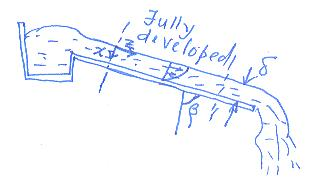 Fully
developed
δ
x
z
β